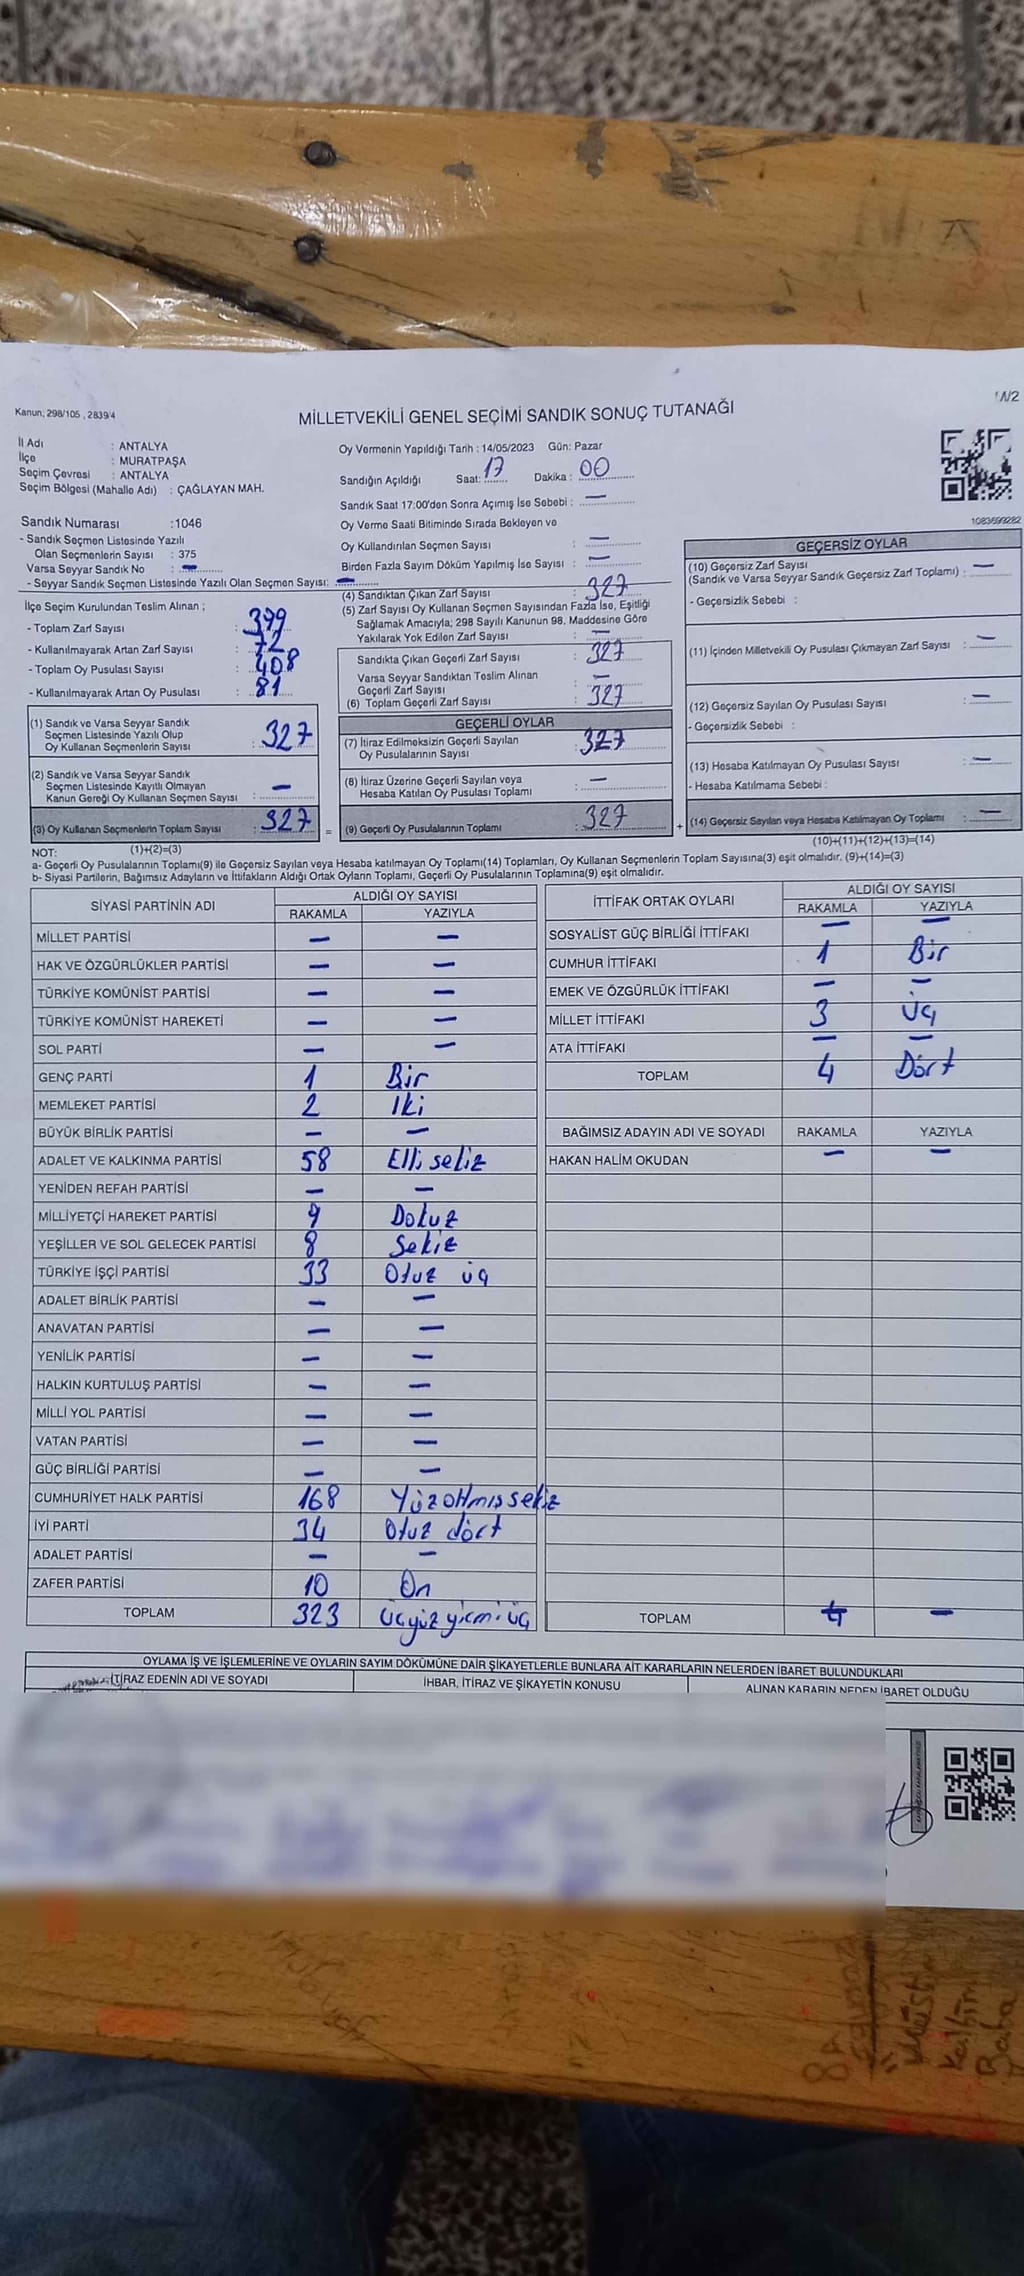 Kanun; 298/105 , 2839/4
MİLLETVEKİLİ GENEL SEÇİMİ SANDIK SONUÇ TUTANAĞI
İl Adı : ANTALYA
İlçe : MURATPAŞA
Seçim Çevresi : ANTALYA
Seçim Bölgesi (Mahalle Adı) : ÇAĞLAYAN MAH.
Oy Vermenin Yapıldığı Tarih : 14/05/2023 Gün: Pazar
Sandığın Açıldığı Saat: 17 Dakika : 00
Sandık Saat 17:00'den Sonra Açımış İse Sebebi : —
Oy Verme Saati Bitiminde Sırada Bekleyen ve
Oy Kullandırılan Seçmen Sayısı : —
Birden Fazla Sayım Döküm Yapılmış İse Sayısı : —
1083699282
Sandık Numarası :1046
- Sandık Seçmen Listesinde Yazılı
Olan Seçmenlerin Sayısı : 375
Varsa Seyyar Sandık No : —
- Seyyar Sandık Seçmen Listesinde Yazılı Olan Seçmen Sayısı: —
İlçe Seçim Kurulundan Teslim Alınan ;
- Toplam Zarf Sayısı : 399
- Kullanılmayarak Artan Zarf Sayısı : 72
- Toplam Oy Pusulası Sayısı : 408
- Kullanılmayarak Artan Oy Pusulası : 81
(1) Sandık ve Varsa Seyyar Sandık
Seçmen Listesinde Yazılı Olup
Oy Kullanan Seçmenlerin Sayısı : 327
(2) Sandık ve Varsa Seyyar Sandık
Seçmen Listesinde Kayıtlı Olmayan
Kanun Gereği Oy Kullanan Seçmen Sayısı : —
(3) Oy Kullanan Seçmenlerin Toplam Sayısı : 327
(1)+(2)=(3)
(4) Sandıktan Çıkan Zarf Sayısı : 327
(5) Zarf Sayısı Oy Kullanan Seçmen Sayısından Fazla İse, Eşitliği
Sağlamak Amacıyla; 298 Sayılı Kanunun 98. Maddesine Göre
Yakılarak Yok Edilen Zarf Sayısı : —
Sandıkta Çıkan Geçerli Zarf Sayısı : 327
Varsa Seyyar Sandıktan Teslim Alınan
Geçerli Zarf Sayısı : —
(6) Toplam Geçerli Zarf Sayısı : 327
GEÇERLİ OYLAR
(7) İtiraz Edilmeksizin Geçerli Sayılan
Oy Pusulalarının Sayısı : 327
(8) İtiraz Üzerine Geçerli Sayılan veya
Hesaba Katılan Oy Pusulası Toplamı : —
= (9) Geçerli Oy Pusulalarının Toplamı : 327
GEÇERSİZ OYLAR
(10) Geçersiz Zarf Sayısı
(Sandık ve Varsa Seyyar Sandık Geçersiz Zarf Toplamı) : —
- Geçersizlik Sebebi :
(11) İçinden Milletvekili Oy Pusulası Çıkmayan Zarf Sayısı : —
(12) Geçersiz Sayılan Oy Pusulası Sayısı : —
- Geçersizlik Sebebi :
(13) Hesaba Katılmayan Oy Pusulası Sayısı : —
- Hesaba Katılmama Sebebi :
+ (14) Geçersiz Sayılan veya Hesaba Katılmayan Oy Toplamı : —
(10)+(11)+(12)+(13)=(14)
NOT:
a- Geçerli Oy Pusulalarının Toplamı(9) ile Geçersiz Sayılan veya Hesaba katılmayan Oy Toplamı(14) Toplamları, Oy Kullanan Seçmenlerin Toplam Sayısına(3) eşit olmalıdır. (9)+(14)=(3)
b- Siyasi Partilerin, Bağımsız Adayların ve İttifakların Aldığı Ortak Oyların Toplamı, Geçerli Oy Pusulalarının Toplamına(9) eşit olmalıdır.
SİYASİ PARTİNİN ADI ALDIĞI OY SAYISI
RAKAMLA YAZIYLA
MİLLET PARTİSİ — —
HAK VE ÖZGÜRLÜKLER PARTİSİ — —
TÜRKİYE KOMÜNİST PARTİSİ — —
TÜRKİYE KOMÜNİST HAREKETİ — —
SOL PARTİ — —
GENÇ PARTİ 1 Bir
MEMLEKET PARTİSİ 2 İki
BÜYÜK BİRLİK PARTİSİ — —
ADALET VE KALKINMA PARTİSİ 58 Elli sekiz
YENİDEN REFAH PARTİSİ — —
MİLLİYETÇİ HAREKET PARTİSİ 9 Dokuz
YEŞİLLER VE SOL GELECEK PARTİSİ 8 Sekiz
TÜRKİYE İŞÇİ PARTİSİ 33 Otuz üç
ADALET BİRLİK PARTİSİ — —
ANAVATAN PARTİSİ — —
YENİLİK PARTİSİ — —
HALKIN KURTULUŞ PARTİSİ — —
MİLLİ YOL PARTİSİ — —
VATAN PARTİSİ — —
GÜÇ BİRLİĞİ PARTİSİ — —
CUMHURİYET HALK PARTİSİ 168 Yüzaltmışsekiz
İYİ PARTİ 34 Otuz dört
ADALET PARTİSİ — —
ZAFER PARTİSİ 10 On
TOPLAM 323 üçyüzyirmi üç
İTTİFAK ORTAK OYLARI ALDIĞI OY SAYISI
RAKAMLA YAZIYLA
SOSYALİST GÜÇ BİRLİĞİ İTTİFAKI — —
CUMHUR İTTİFAKI 1 Bir
EMEK VE ÖZGÜRLÜK İTTİFAKI — —
MİLLET İTTİFAKI 3 üç
ATA İTTİFAKI — —
TOPLAM 4 Dört
BAĞIMSIZ ADAYIN ADI VE SOYADI RAKAMLA YAZIYLA
HAKAN HALİM OKUDAN — —
TOPLAM —
OYLAMA İŞ VE İŞLEMLERİNE VE OYLARIN SAYIM DÖKÜMÜNE DAİR ŞİKAYETLERLE BUNLARA AİT KARARLARIN NELERDEN İBARET BULUNDUKLARI
İTİRAZ EDENİN ADI VE SOYADI İHBAR, İTİRAZ VE ŞİKAYETİN KONUSU ALINAN KARARIN NEDEN İBARET OLDUĞU